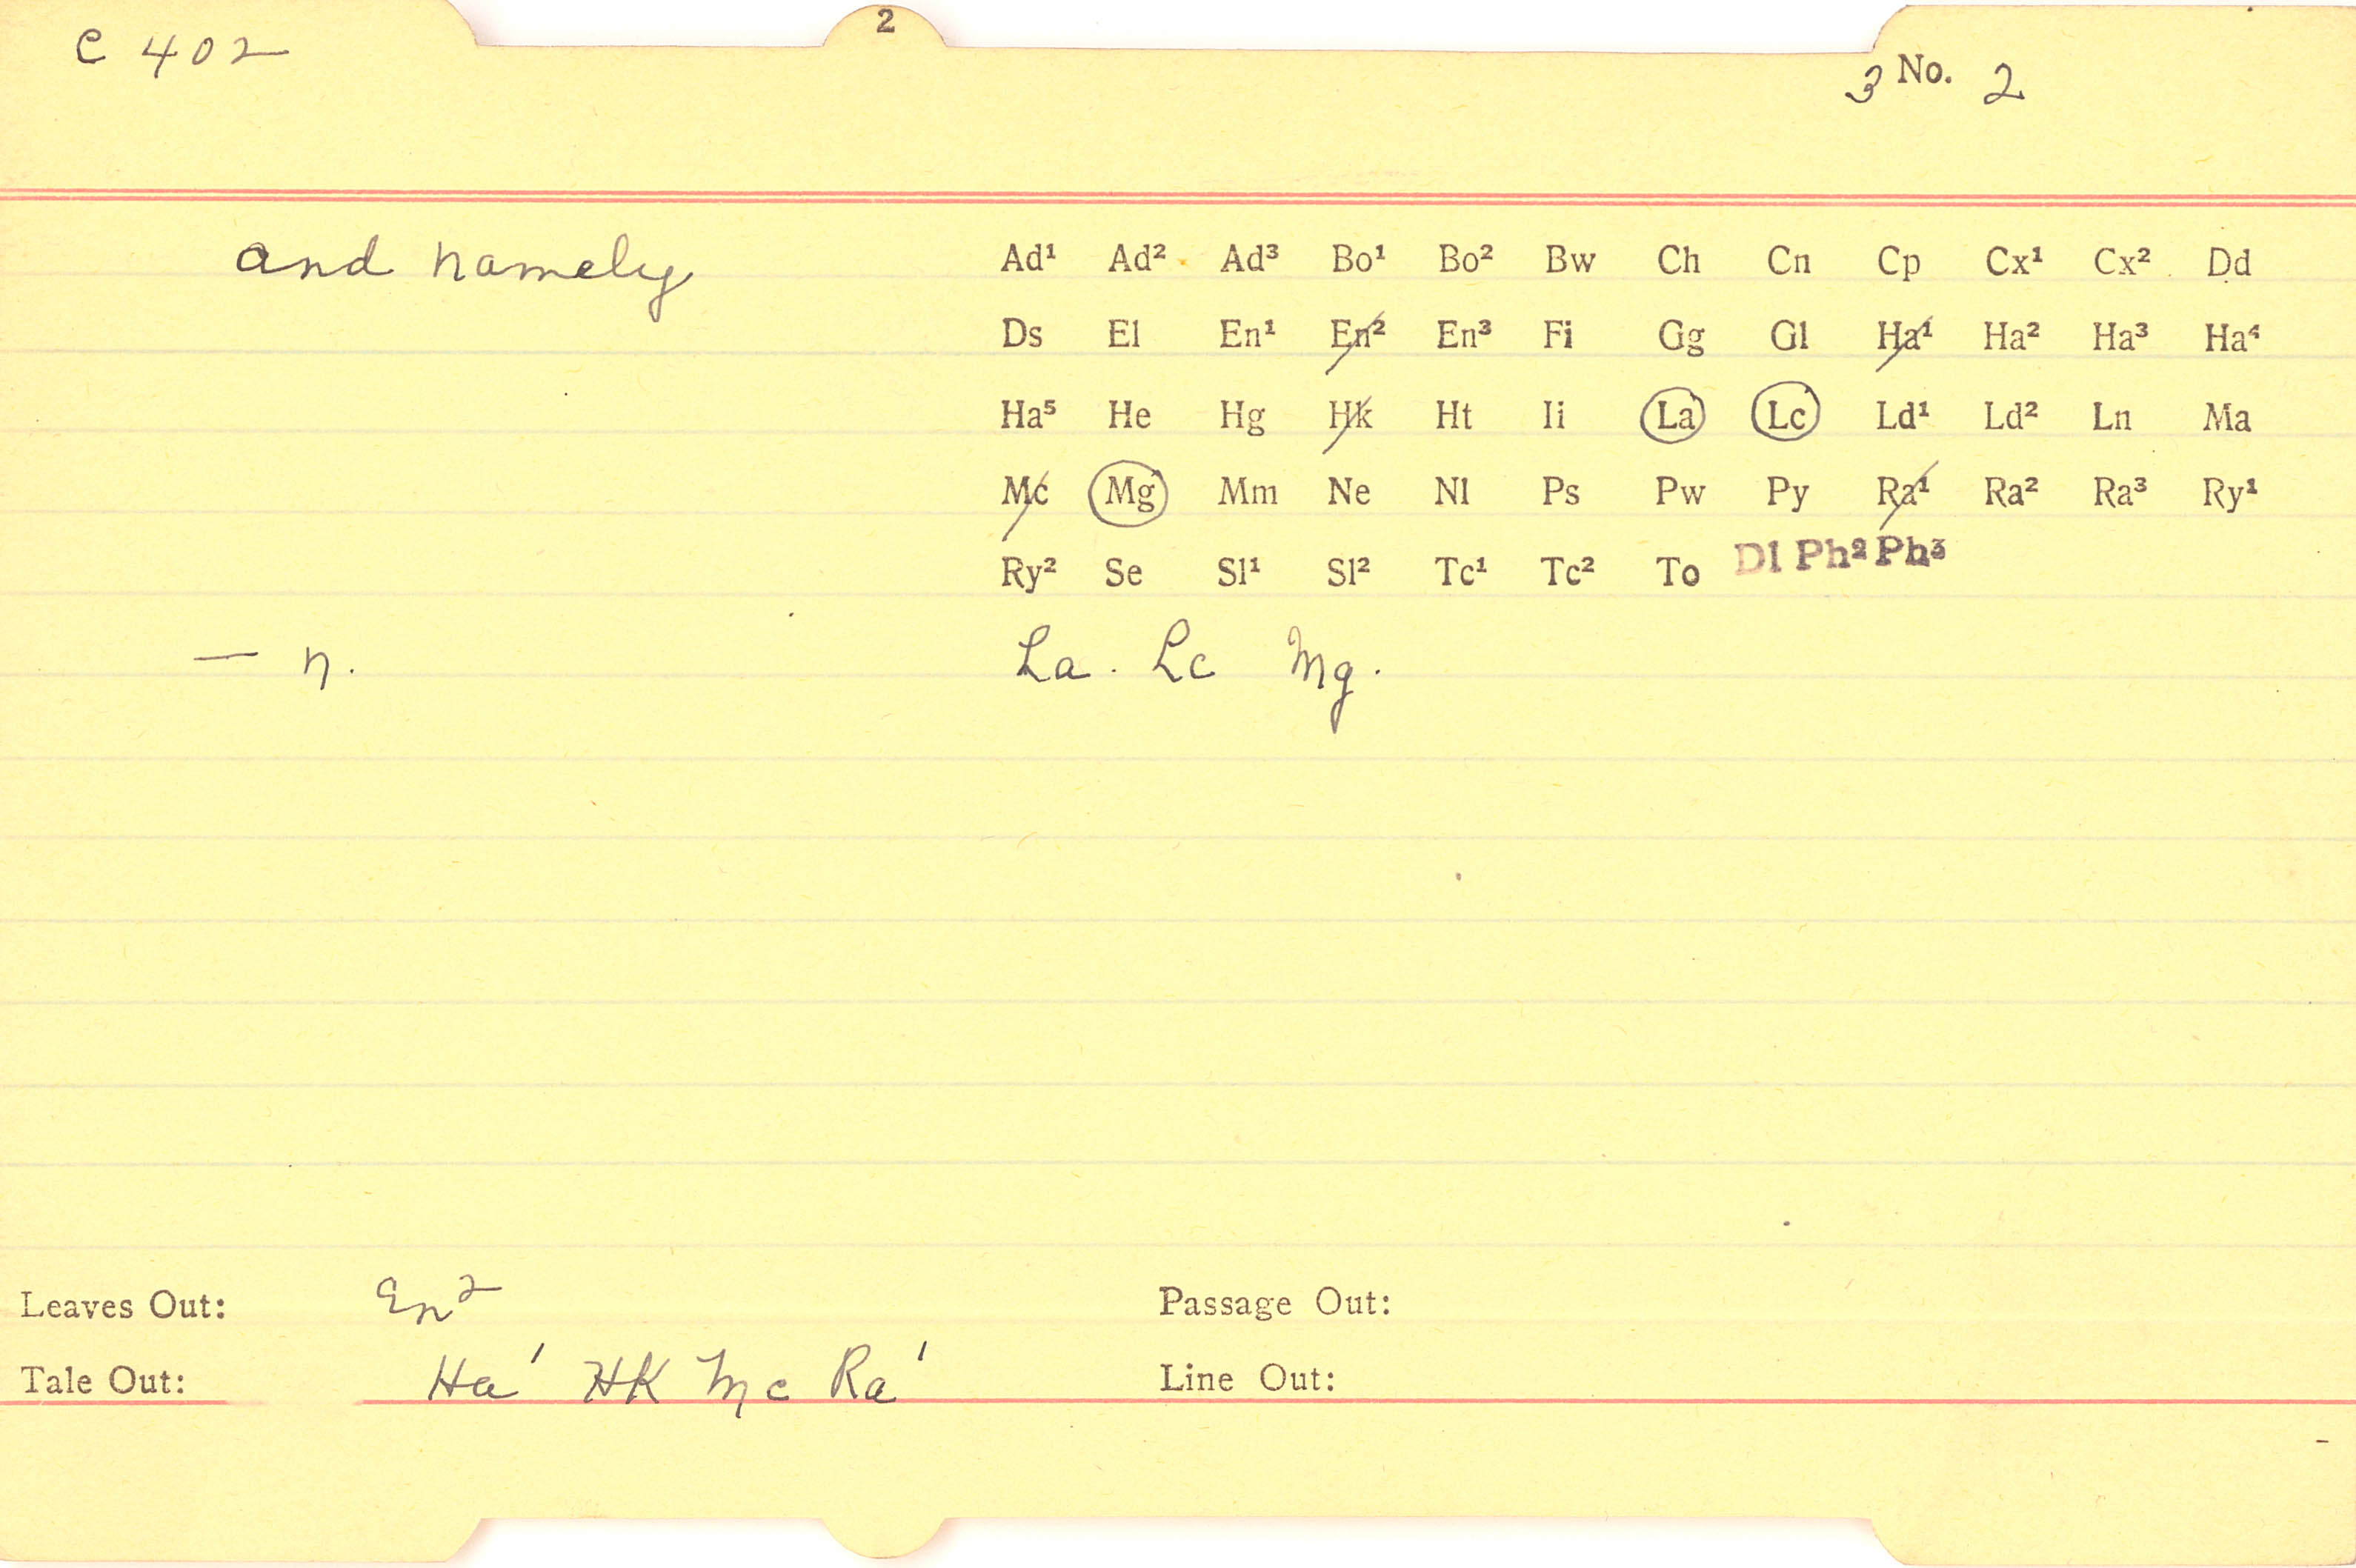 2
C 402
3 No. 2
and namely
Ad¹ Ad² Ad³ Bo¹ Bo² Bw Ch Cn Cp Cx¹ Cx² Dd
Ds El En¹ En² En³ Fi Gg Gl Ha¹ Ha² Ha³ Ha⁴
Ha⁵ He Hg Hk Ht Ii La Lc Ld¹ Ld² Ln Ma
Mc Mg Mm Ne Nl Ps Pw Py Ra¹ Ra² Ra³ Ry¹
Ry² Se Sl¹ Sl² Tc¹ Tc² To Dl Ph² Ph³
— n. La. Lc Mg.
Leaves Out: En² Passage Out:
Tale Out: Ha¹ HK Mc Ra¹ Line Out: